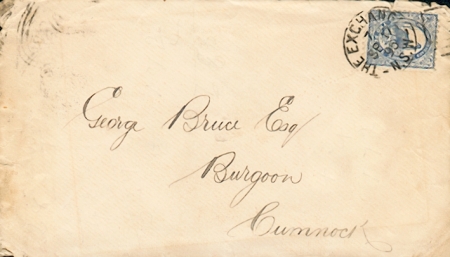 THE EXCHANGE
N.S.W.
George Bruce Esq
Burgoon
Cumnock